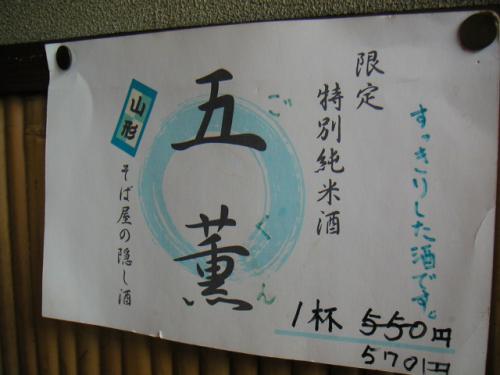 限定
特別純米酒
すっきりした酒です。
五薫
ごくん
山形
そば屋の隠し酒
1杯 550円
570円